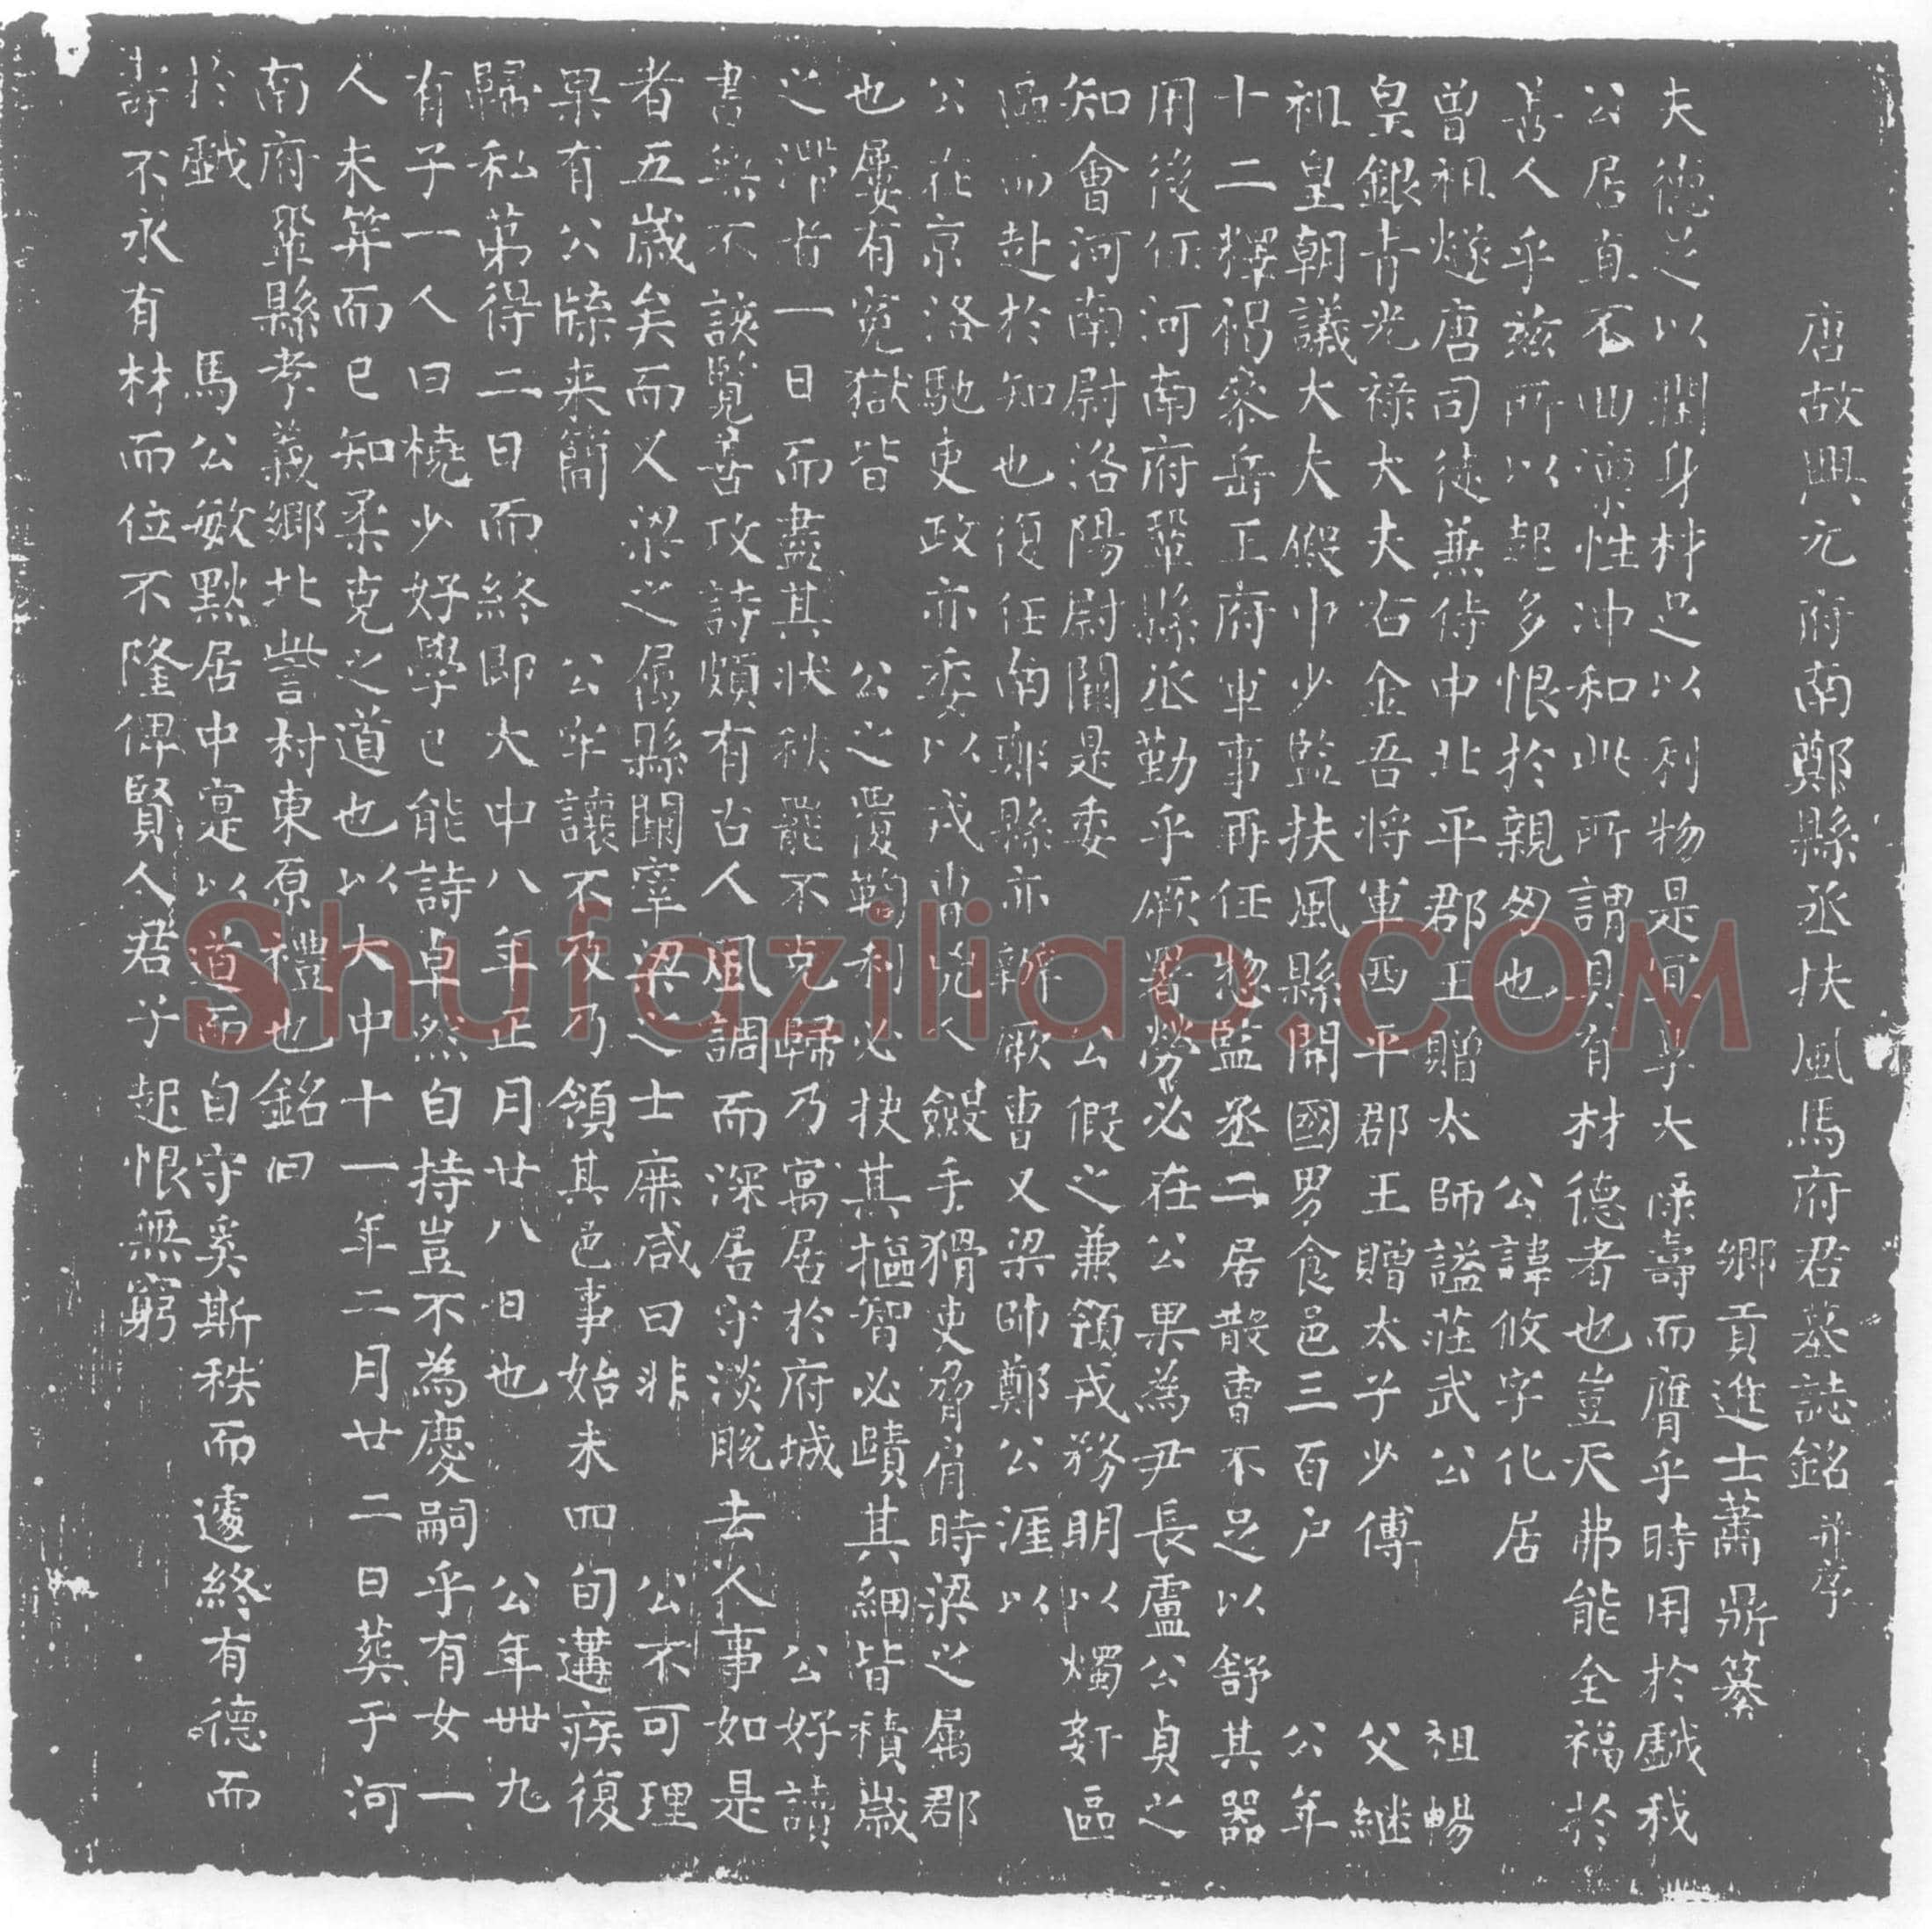 唐故興元府南鄭縣丞扶風馬府君墓誌銘并序
鄉貢進士蕭鼎纂
夫德足以潤身材足以利物是宜享大祿壽而膺乎時用於戲我
公居直不曲稟性沖和此所謂具有材德者也豈天弗能全福於
善人乎茲所以起多恨於親匆也 公諱攸字化居
曾祖燧唐司徒兼侍中北平郡王贈太師謚莊武公 祖暢
皇銀青光祿大夫右金吾將軍西平郡王贈太子少傅 父繼
祖皇朝議大夫殿中少監扶風縣開國男食邑三百戶 公年
十二釋褐參岳王府軍事再任 監丞二居散曹不足以舒其器
用後任河南府鞏縣丞勤乎厥署勞必在公果為尹長盧公貞之
知會河南尉洛陽尉闕是委 公假之兼領戎務明以燭姧區
區而赴於知也復任南鄭縣亦辭厥曹又梁帥鄭公涯以
公在京洛馳吏政亦委以戎 兇人斂手猾吏脅肩時梁之属郡
也屢有冤獄皆 公之覆鞫利必抉其摳智必賾其細皆積歲
之滯者一日而盡其狀秩罷不克歸乃寓居於府城 公好讀
書無不該覽苦攻詩頗有古人風調而深居守淡脫去人事如是
者五歲矣而又梁之属縣闕宰梁之士庶咸曰非 公不可理
果有公牒来簡 公牢讓不及乃領其邑事始未四旬遘疾復
歸私第得二日而終即大中八年正月廿八日也 公年卌九
有子一人曰橈少好學已能詩卓然自持豈不為慶嗣乎有女一
人未笄而已知柔克之道也以大中十一年二月廿二日葬于河
南府鞏縣孝義鄉北訾村東原禮也銘曰
於戲 馬公敏默居中寔以道而自守奚斯秩而遽終有德而
壽不永有材而位不隆俾賢人君子起恨無窮